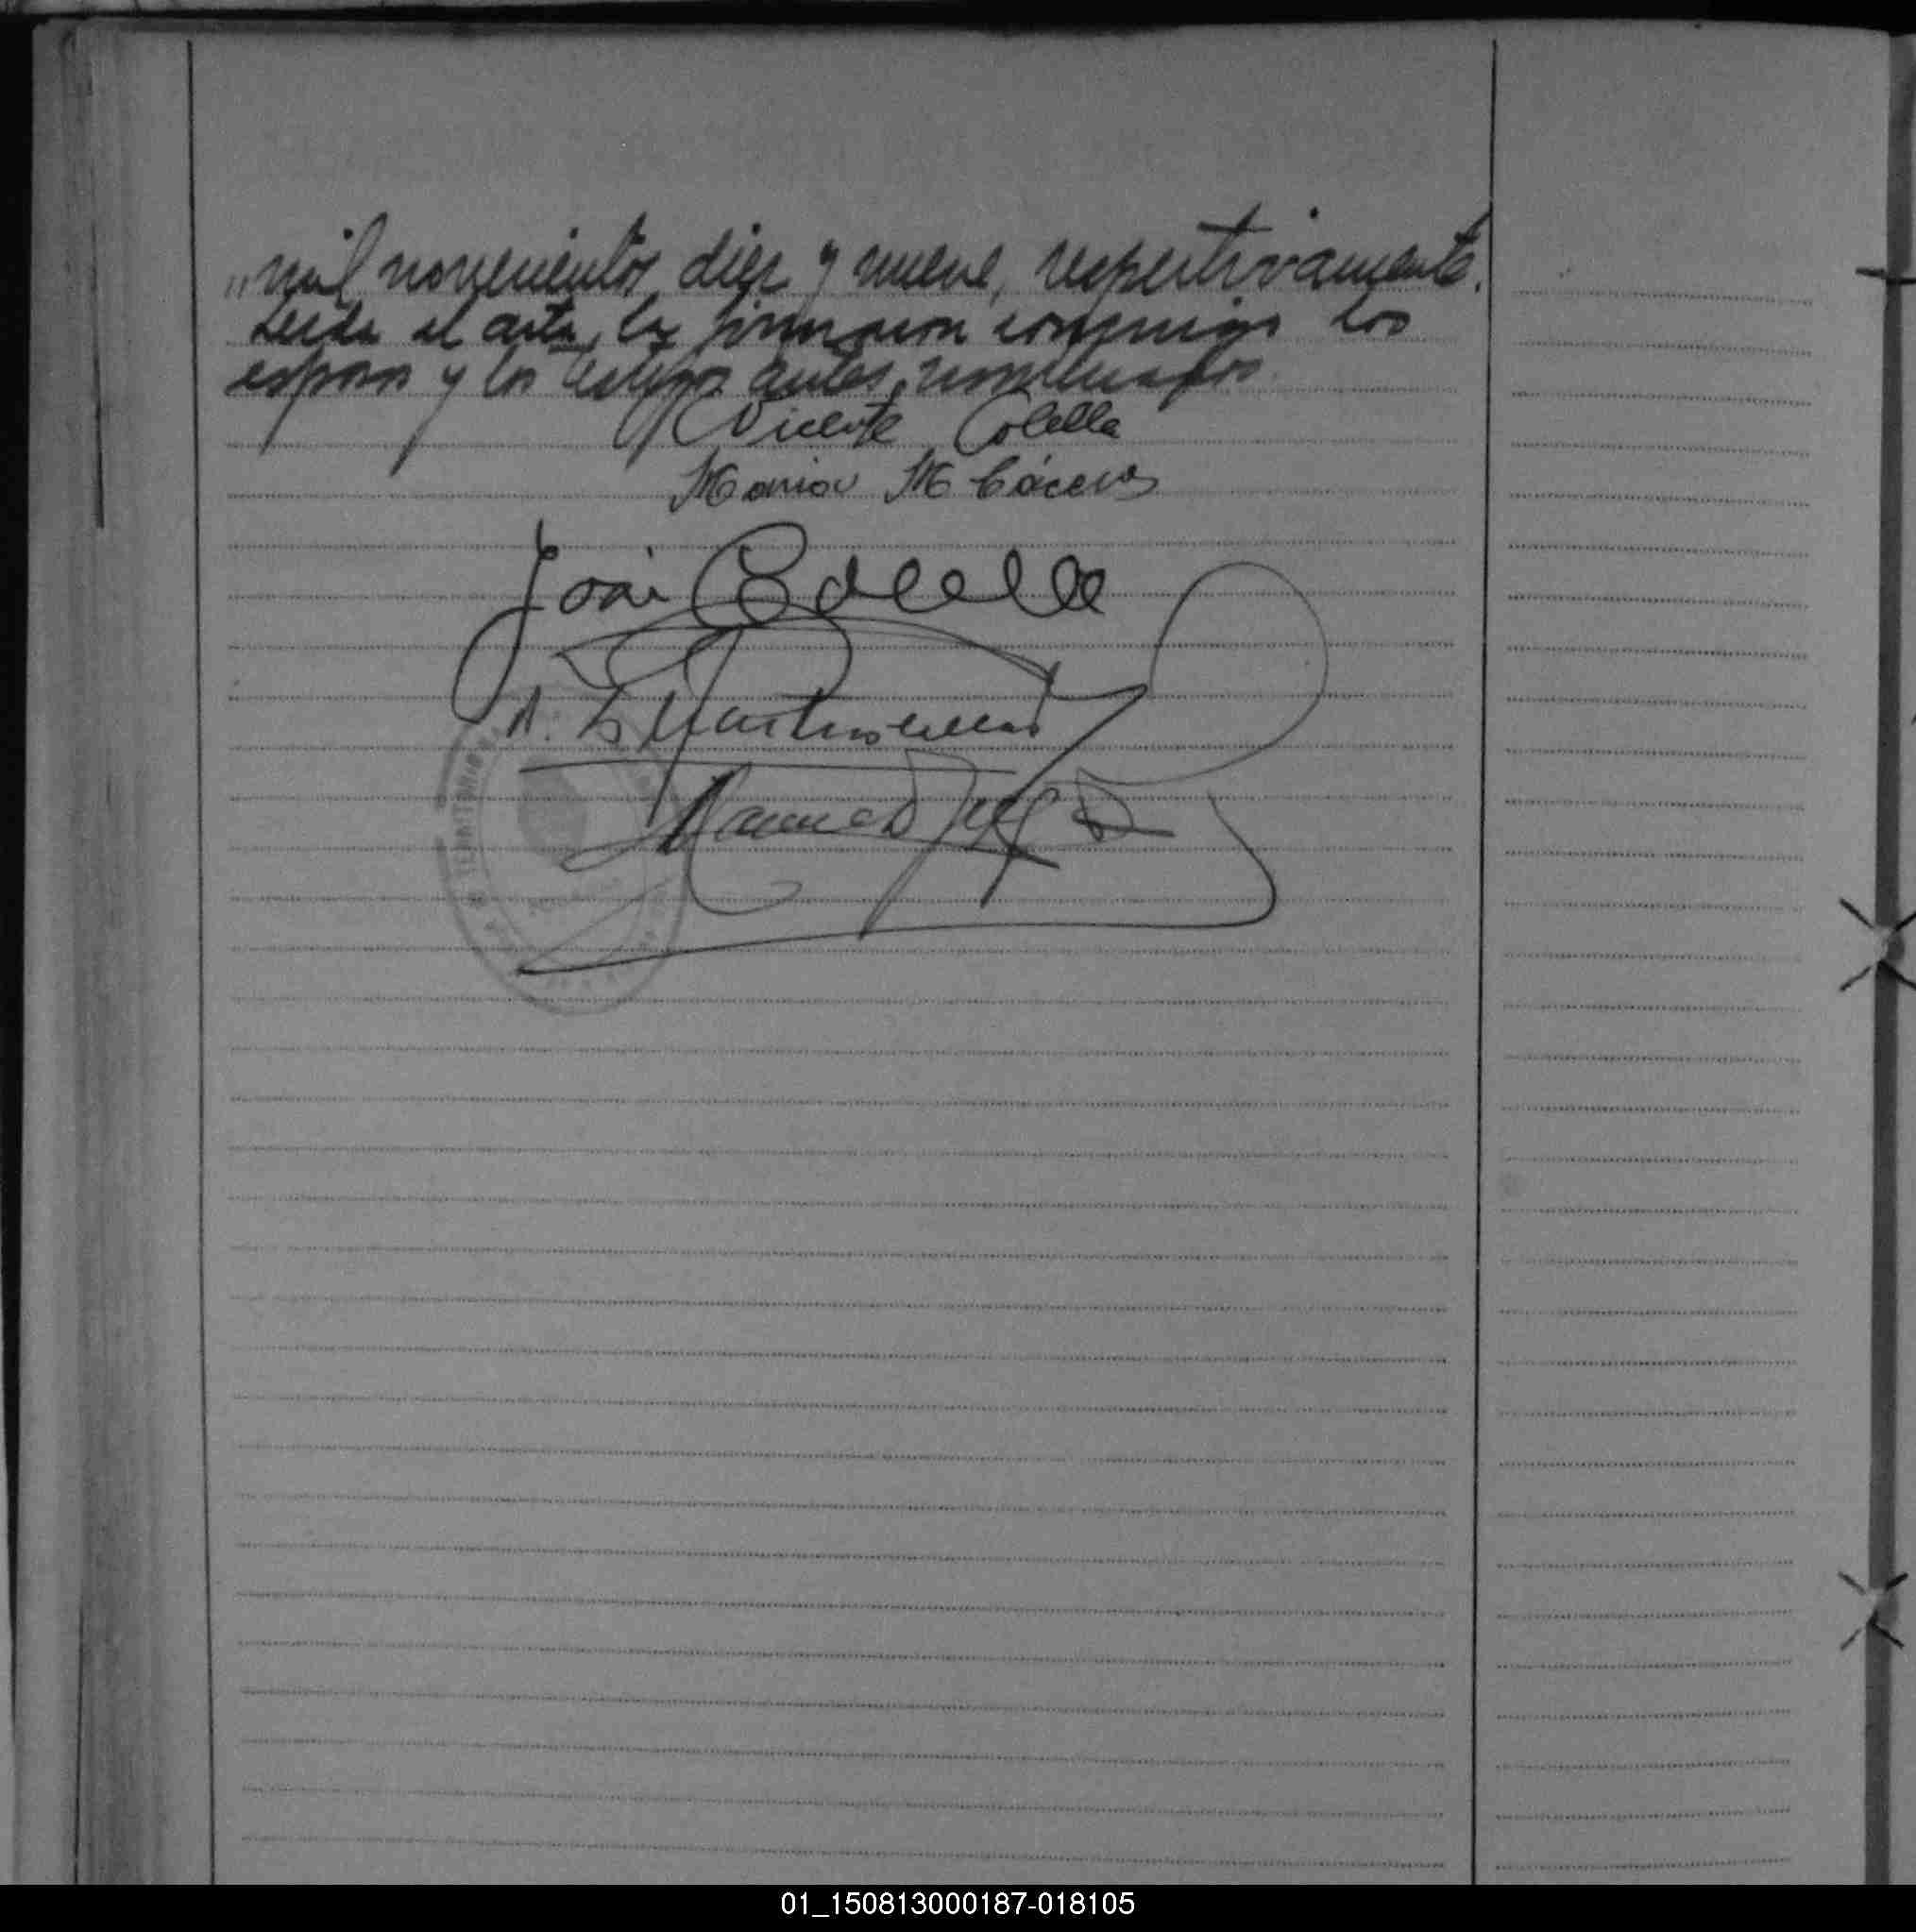 „mil novecientos diez y nueve, respectivamente.
Leida el acta, la firmaron conmigo los
esposos y los testigos antes nombrados.
Vicente Colella
Maria M Cáceres
José Colella
A.
01_150813000187-018105